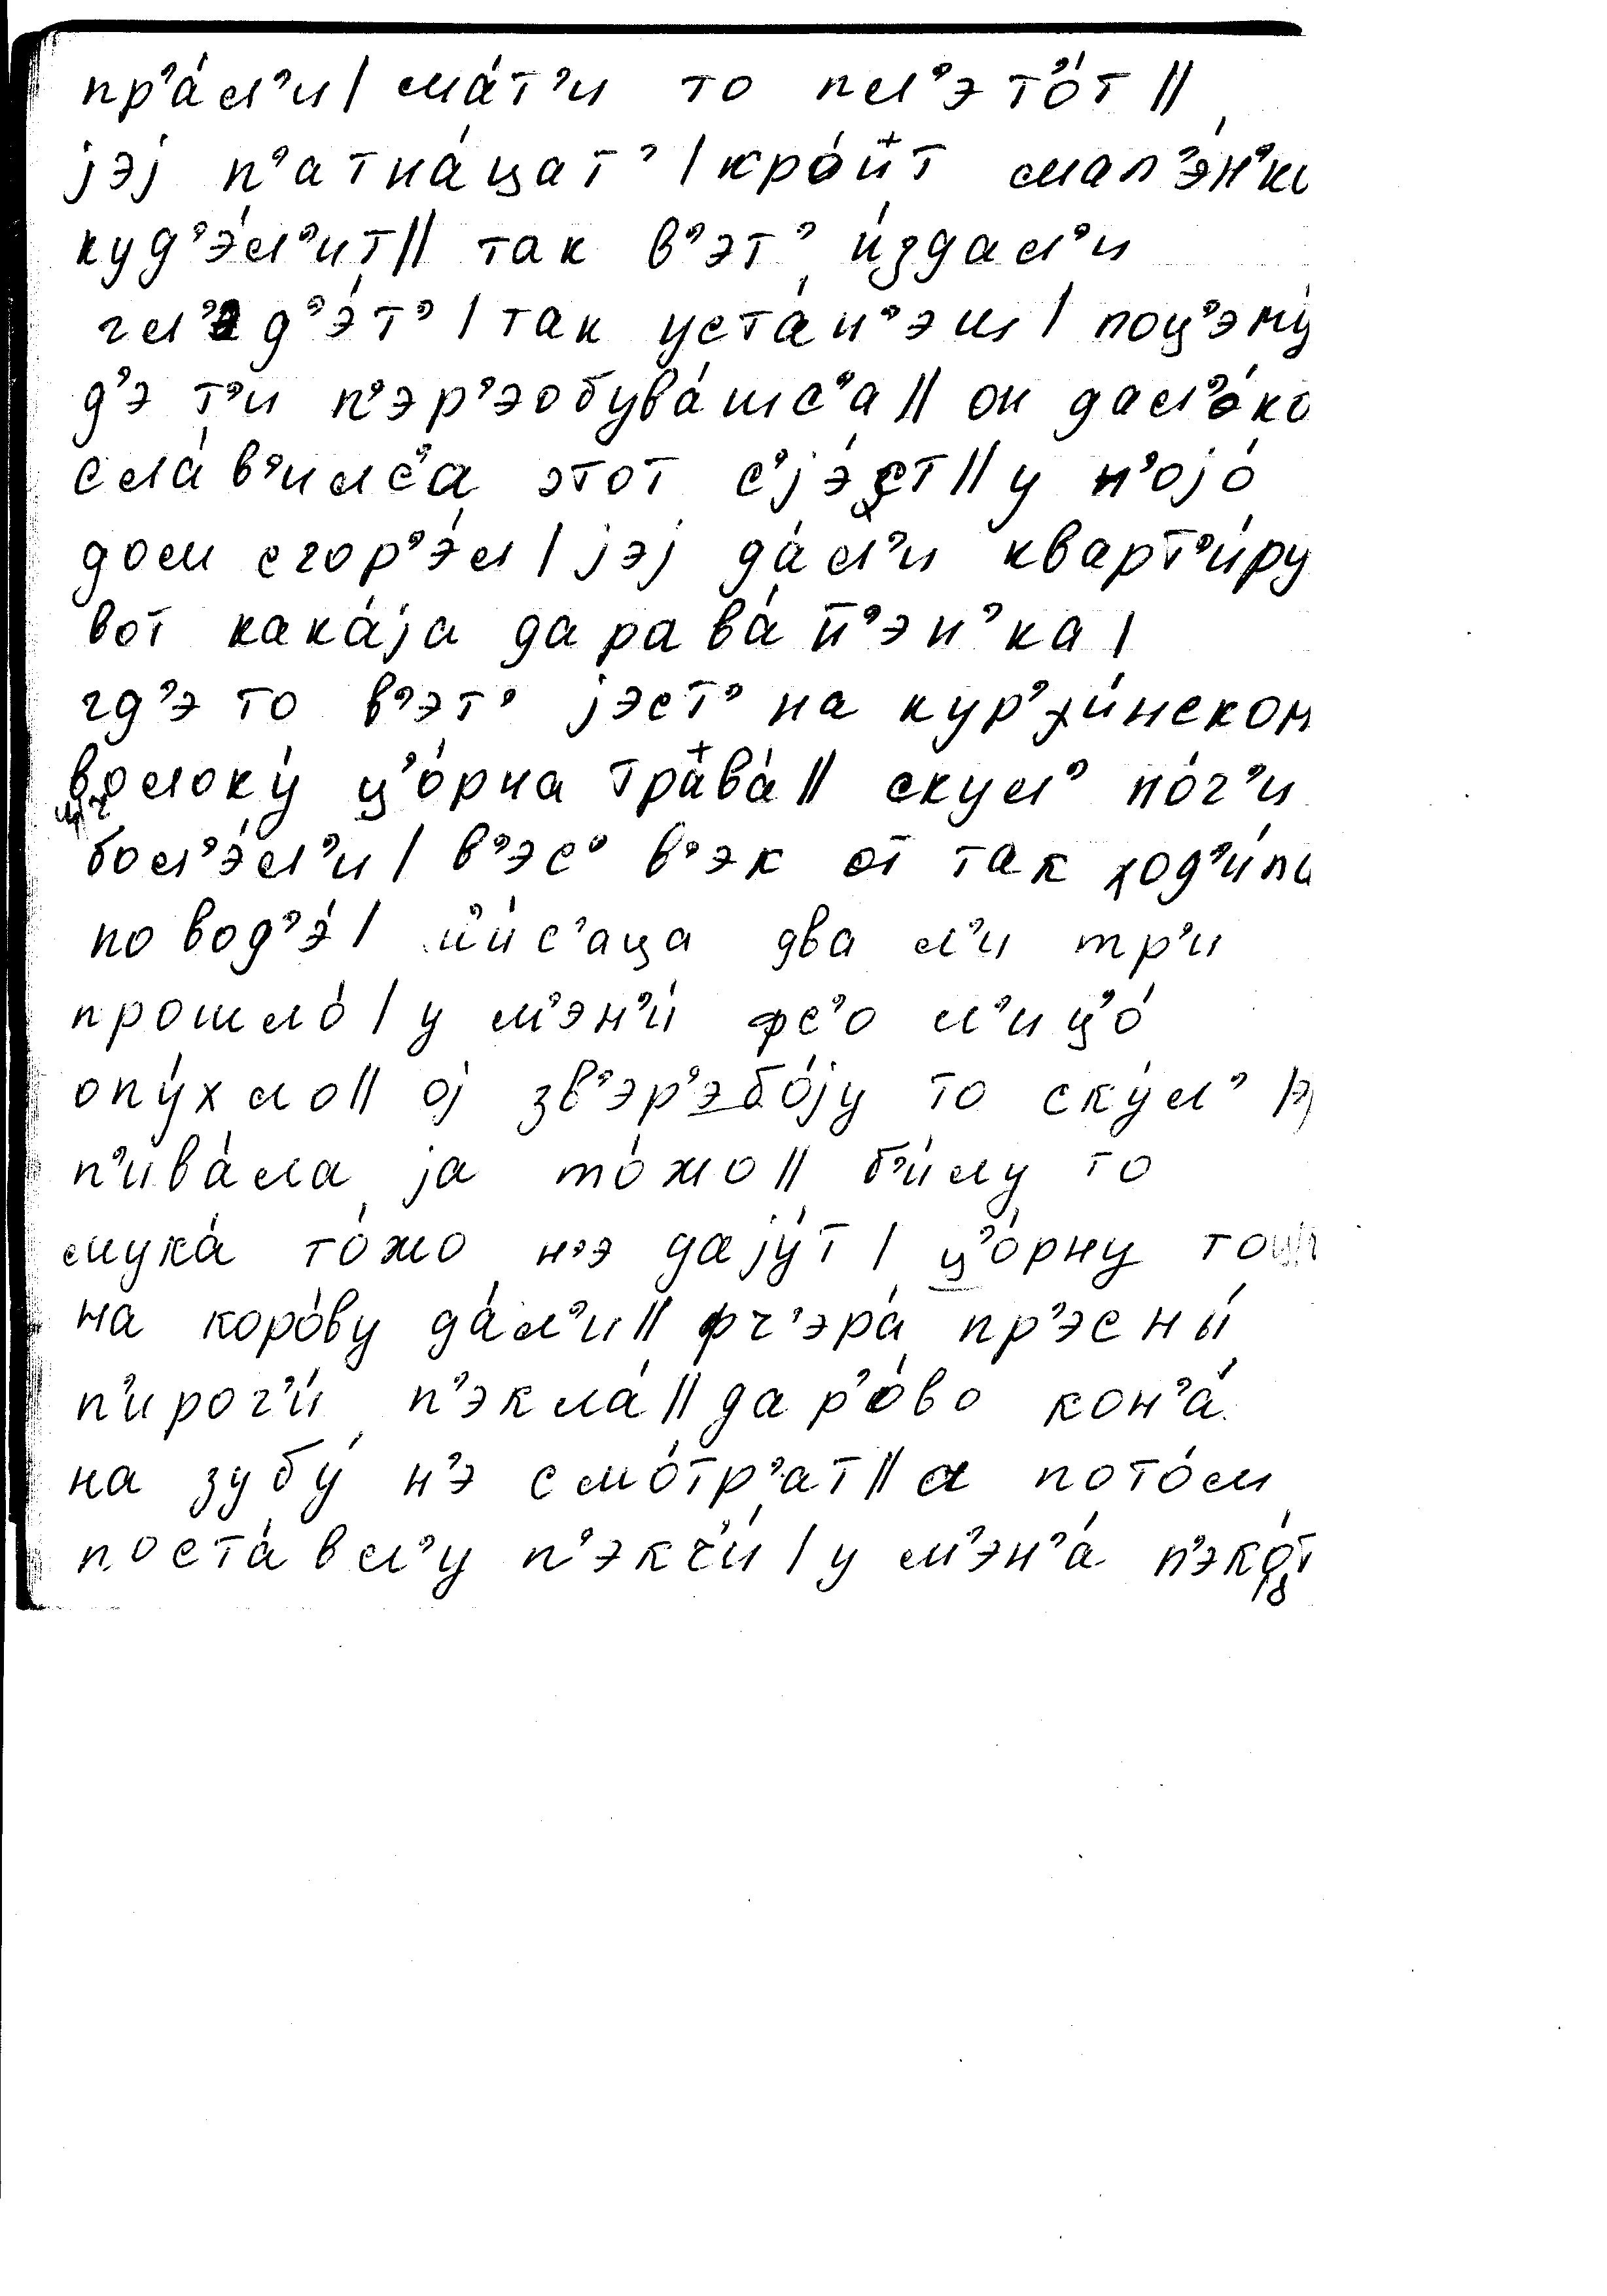 пр'а́л'и | ма́т'и то пл'эт'о́т ||
јэј п'атна́цат' | кро́йт мал'э́н'ки
куд'э́л'ит || так в'эт' и́здал'и
гл'ад'э́т' | так уста́н'эш | поц'эму́
д'э т'и п'эр'эобува́шс'а || он дал'о́ко
сла́в'илс'а этот с'јэ́ст || у н'ојо́
дом сгор'э́л | јэј да́л'и кварт'и́ру
вот кака́ја дарава́н'эн'ка |
гд'э то в'эт' јэст' на кур'хи́нском
волоку́ ц'о́рна трава́ || скул' но́г'и
бол'э́л'и | в'эс' в'эк от так ход'и́ли
по вод'э́ | м'и́с'аца два л'и тр'и
прошло́ | у м'эн'и́ фс'о л'иц'о́
опу́хло || ој зв'эр'эбо́ју то ску́л'
п'ива́ла ја то́жо || б'и́лу то
мука́ то́жо н'э дају́т | ц'о́рну
на коро́ву да́л'и || фч'эра́ пр'эсны́
п'ирог'и́ п'экла́ || дар'о́во кон'а́
на зубу́ н'э смо́тр'ат || а пото́м
поста́вл'у п'экч'и́ | у м'эн'а́ п'эко́т
18